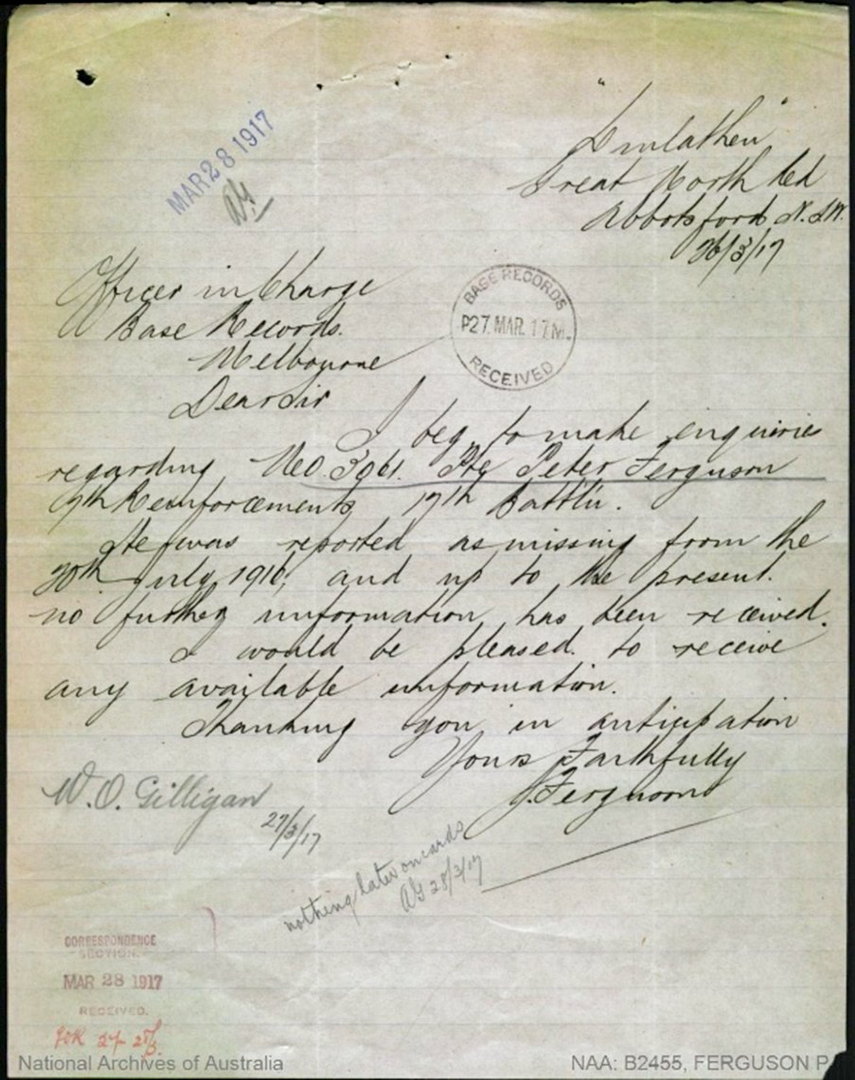 MAR 28 1917
"Linlathen"
Great North Rd
Abbotsford N.S.W.
26/3/17
Officer in Charge
Base Records.
Melbourne
BASE RECORDS
P27. MAR. 17M.
RECEIVED
Dear Sir
I beg to make enquiries
regarding No. 3961. Pte Peter Ferguson
9th Reinforcements 17th Battln.
He was reported as missing from the
20th July, 1916, and up to the present.
no further information has been received.
I would be pleased to receive
any available information.
Thanking you in anticipation
Yours Faithfully
J. Ferguson
W. O. Gilligan
27/3/17
nothing later on cards
28/3/17
CORRESPONDENCE
SECTION.
MAR 28 1917
RECEIVED.
National Archives of Australia
NAA: B2455, FERGUSON P